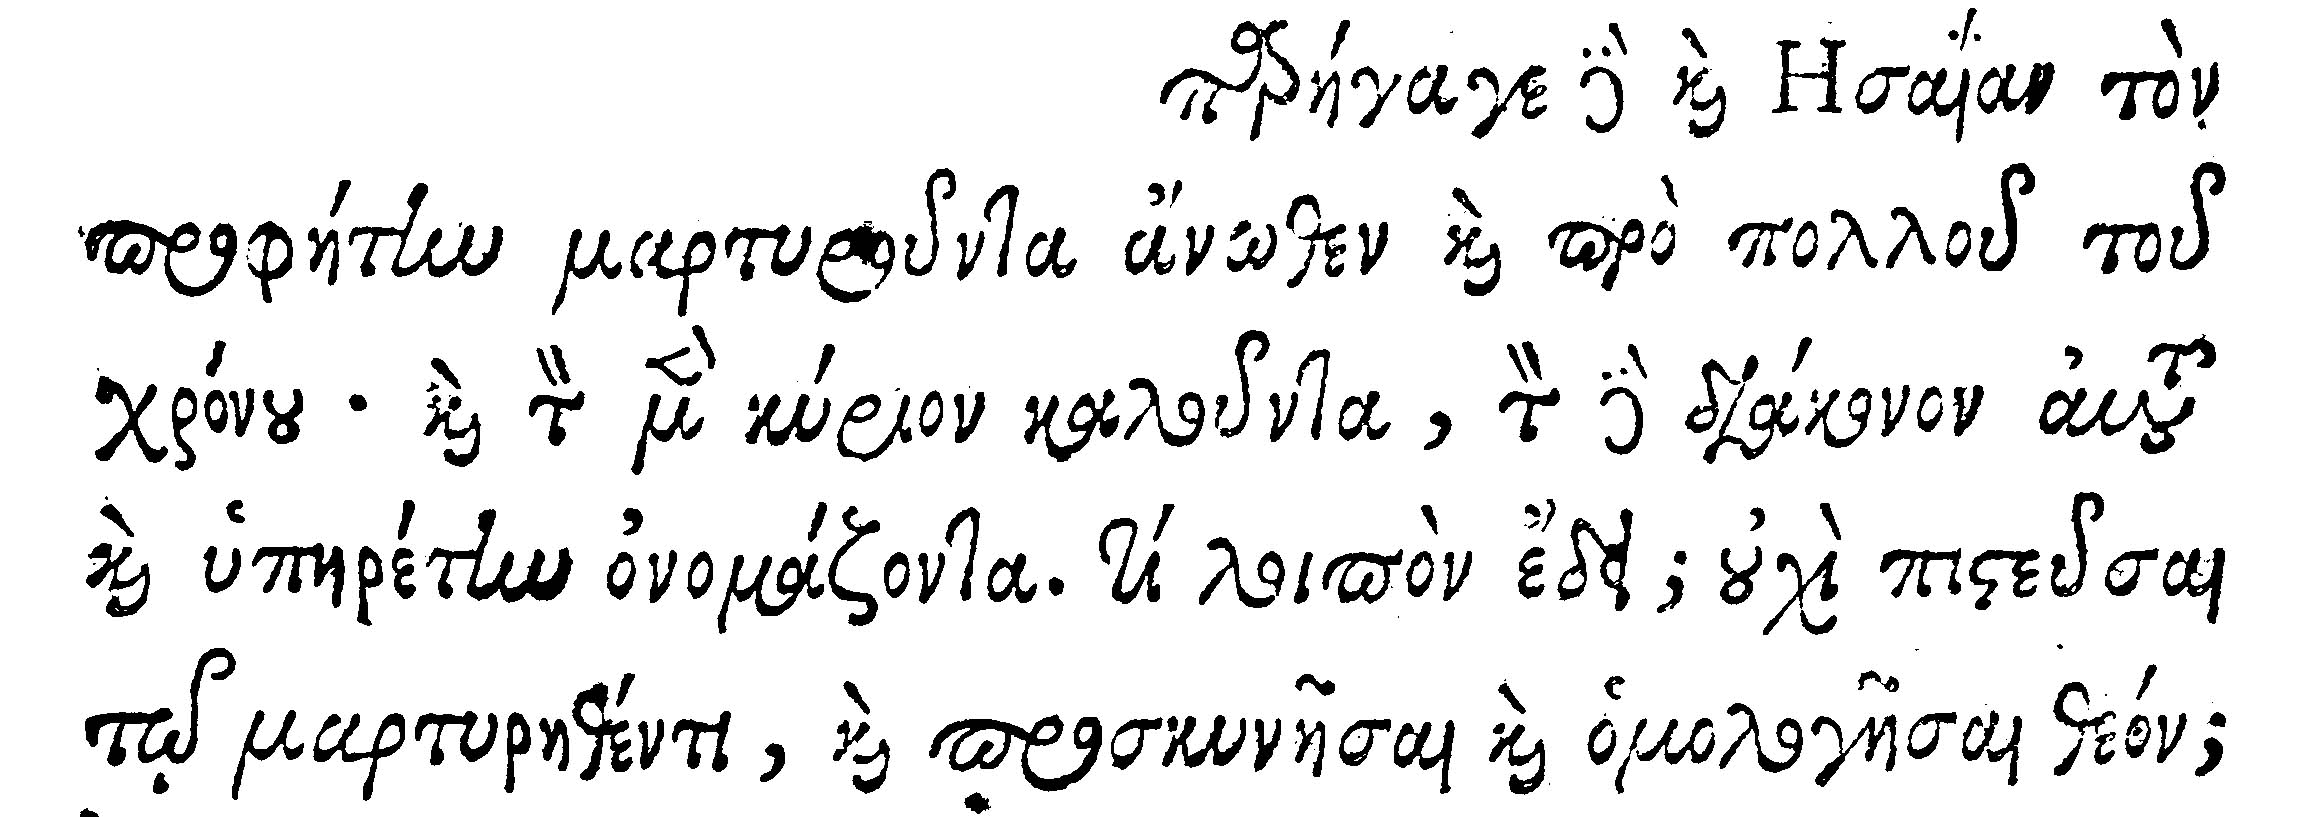 παρήγαγε δὲ καὶ Ησαΐαν τὸν
προφήτην μαρτυροῦντα ἄνωθεν καὶ πρὸ πολλοῦ τοῦ
χρόνου · καὶ τὸν μὲν κύριον καλοῦντα, τὸν δὲ διάκονον αὐτοῦ
καὶ ὑπηρέτην ὀνομάζοντα. τί λοιπὸν ἔδει; οὐχὶ πιστεῦσαι
τῷ μαρτυρηθέντι, καὶ προσκυνῆσαι καὶ ὁμολογῆσαι θεόν;